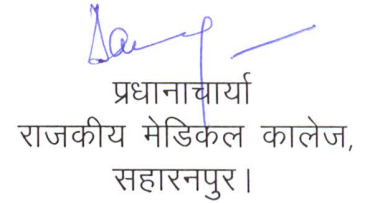 प्रधानाचार्या
राजकीय मेडिकल कालेज,
सहारनपुर।